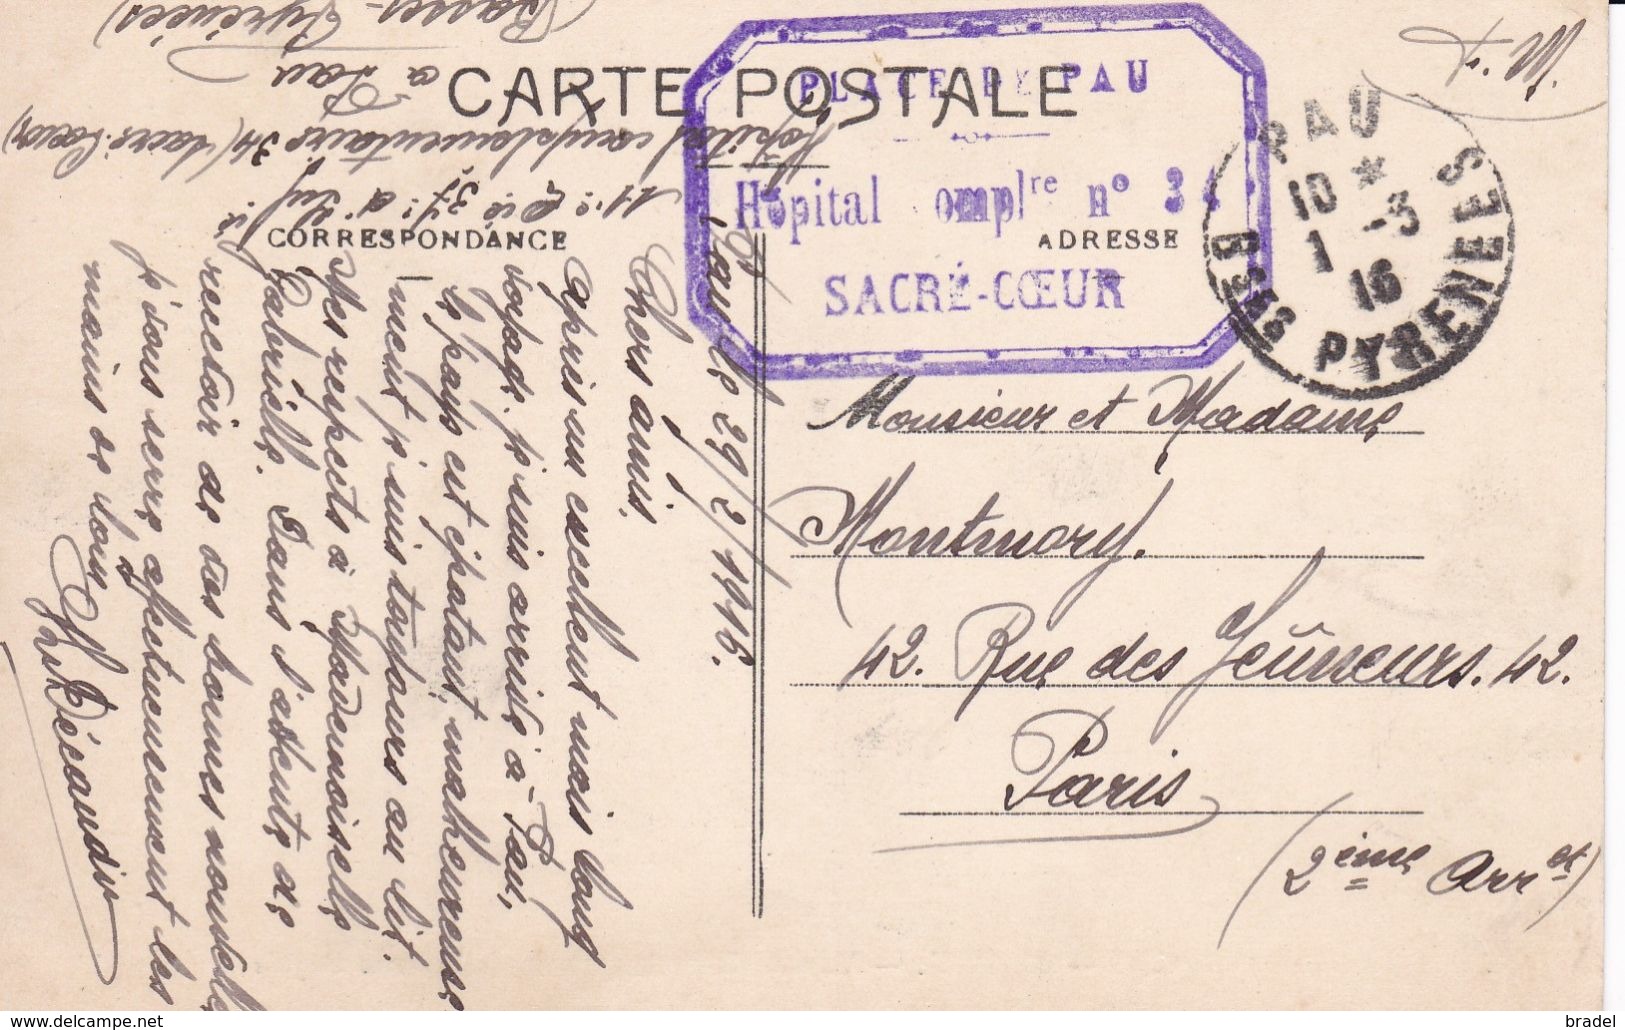 CARTE POSTALE
CORRESPONDANCE
ADRESSE
PLACE DE PAU
Hôpital ompl^re n° 34
SACRÉ-CŒUR
PAU
10 *
1 -3
16
BSES PYRENEES
Monsieur et Madame
Montmory.
42. Rue des Jeûneurs. 42.
Paris
(2ème Arr^et)
Pau le 29/2/1916.
Chers amis.
Après un excellent mais long
voyage je suis arrivé à Pau,
le pays est épatant, malheureuse
ment je suis toujours au lit.
Mes respects à Mademoiselle
Gabrielle. Dans l'attente de
recevoir de vos bonnes nouvelles
je vous serre affectueusement les
mains de loin
Décaudin
11^e Cie 37^e d'Inf^ie
Hôpital complémentaire 34 (Sacré-Cœur)
à Pau
(Basses-Pyrénées)
www.delcampe.net
bradel